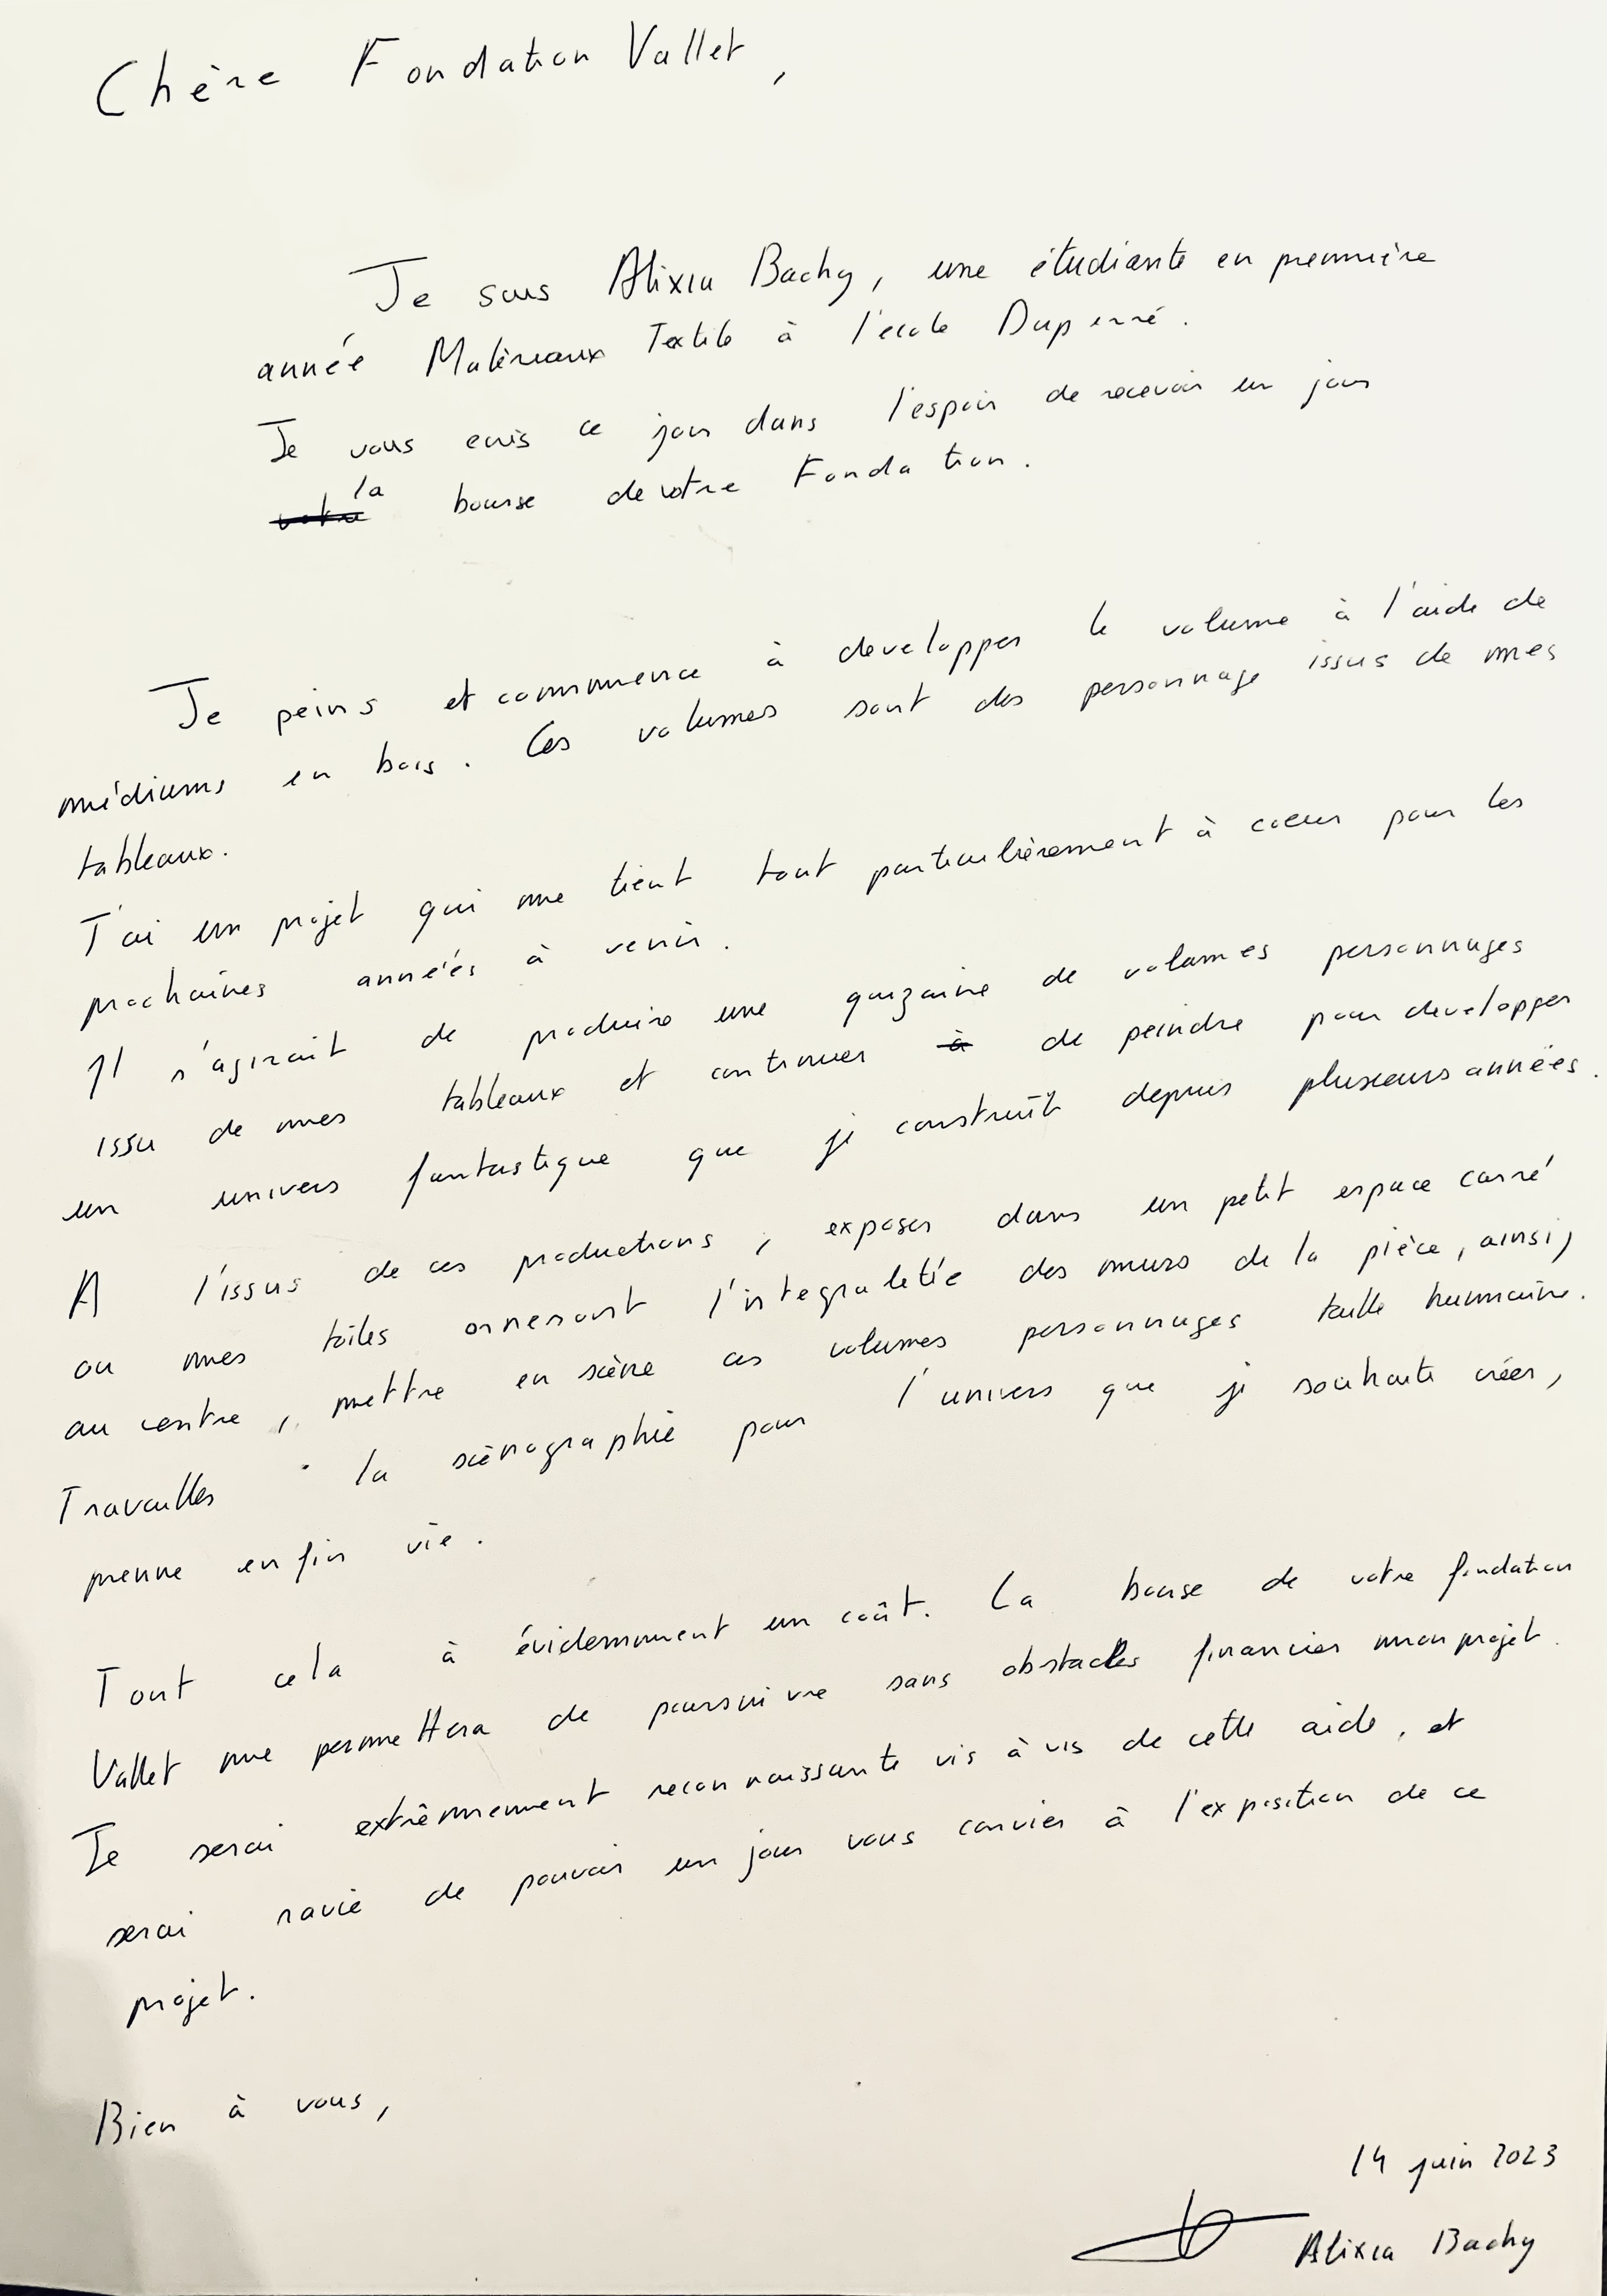 Chère Fondation Vallet,
Je suis Alixia Bachy, une étudiante en première
année Matériaux Textile à l'école Duperré.
Je vous ecris ce jour dans l'espoir de recevoir un jour
votre la bourse de votre Fondation.
Je peins et commence à developper le volume à l'aide de
médiums en bois. Ces volumes sont des personnage issus de mes
tableaux.
J'ai un projet qui me tient tout particulièrement à coeur pour les
prochaines années à venir.
Il s'agirait de produire une quizaine de volumes personnages
issu de mes tableaux et continuer à de peindre pour developper
un univers fantastique que je construit depuis plusieurs années.
A l'issus de ces productions, exposer dans un petit espace carré
ou mes toiles orneront l'integraletée des murs de la pièce, ainsi,
au centre, mettre en scène ces volumes personnages taille humaine.
Travailler la scènographie pour l'univers que je souhaite créer,
prenne enfin vie.
Tout cela à évidemment un coût. La bourse de votre fondation
Vallet me permettera de poursuivre sans obstacles financier mon projet.
Je serai extrêmement reconnaissante vis à vis de cette aide, et
serai ravie de pouvoir un jour vous convier à l'exposition de ce
projet.
Bien à vous,
14 juin 2023
Alixia Bachy